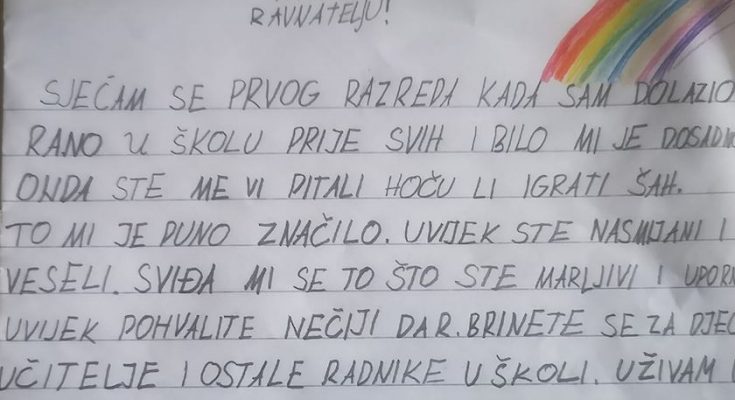 RAVNATELJU!
SJEĆAM SE PRVOG RAZREDA KADA SAM DOLAZIO
RANO U ŠKOLU PRIJE SVIH I BILO MI JE DOSADN
ONDA STE ME VI PITALI HOĆU LI IGRATI ŠAH.
TO MI JE PUNO ZNAČILO. UVIJEK STE NASMIJANI I
VESELI. SVIĐA MI SE TO ŠTO STE MARLJIVI I UPOR
UVIJEK POHVALITE NEČIJI DAR. BRINETE SE ZA DJEC
UČITELJE I OSTALE RADNIKE U ŠKOLI. UŽIVAM